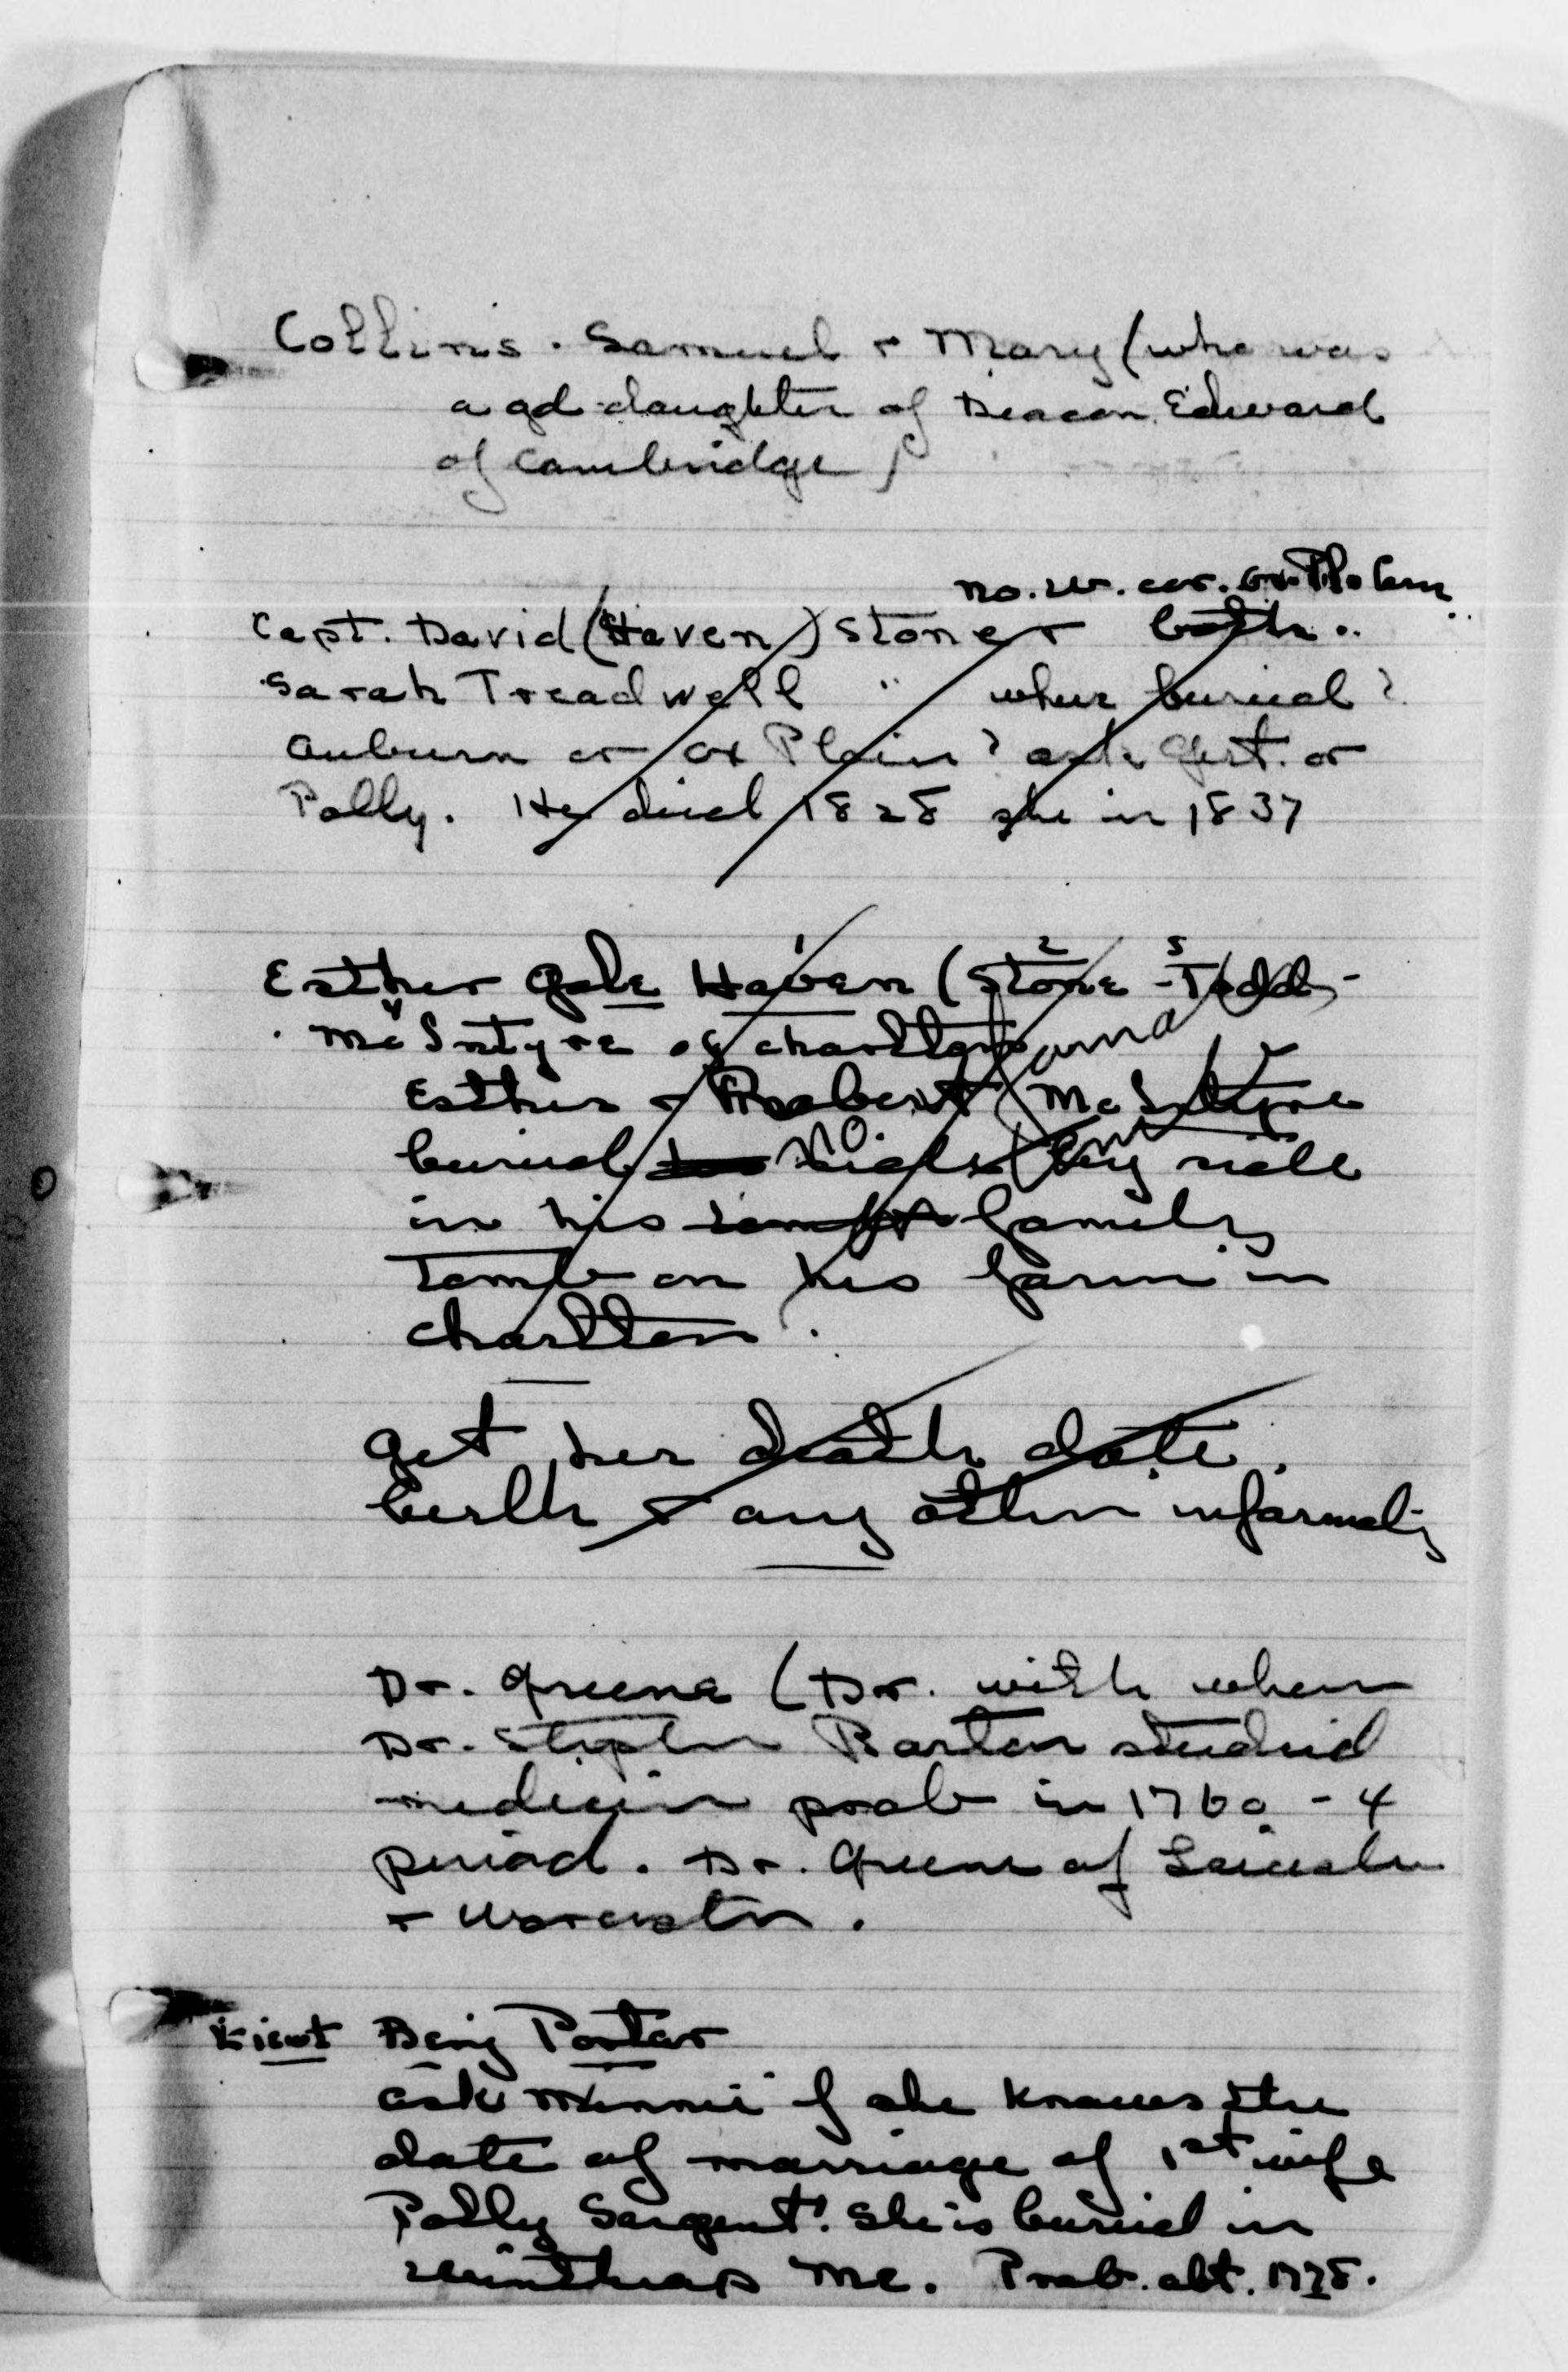 Collins. Samuel + Mary (who was
a gd-daughter of Deacon Edward
of Cambridge)
no. w. cor. Ox. Pl. Cem
Capt. David (Haven) Stone + both..
Sarah Treadwell " where buried?
Auburn or Ox Plain? ask Gert. or
Polly. He died 1828 she in 1837
Esther Gale Haven (Stone - Todd -
McIntyre of Charlton
Esther + Robert McIntyre
buried side by side
no.
in his family
Tomb on his farm in
Charlton.
get her death date.
birth + any other informati
Dr. Greene (Dr. with whom
Dr. Stephen Barton studied
medicine prob in 1760 - 4
period. Dr. Greene of Leicester
+ Worcester.
Benj Porter
ask Minnie if she knows the
date of marriage of 1st wife
Polly Sargent. She is buried in
Winthrop Me. Prob. abt.